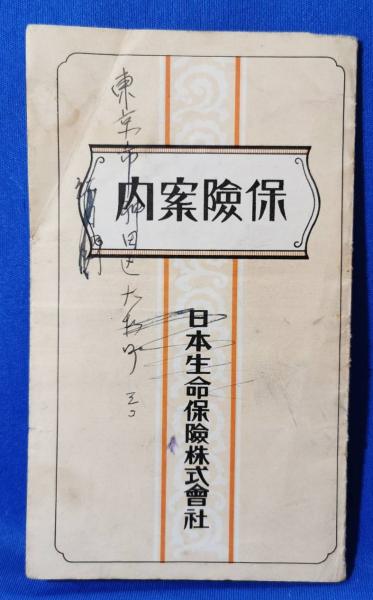 保險案内
日本生命保險株式會社
東京市神田区大